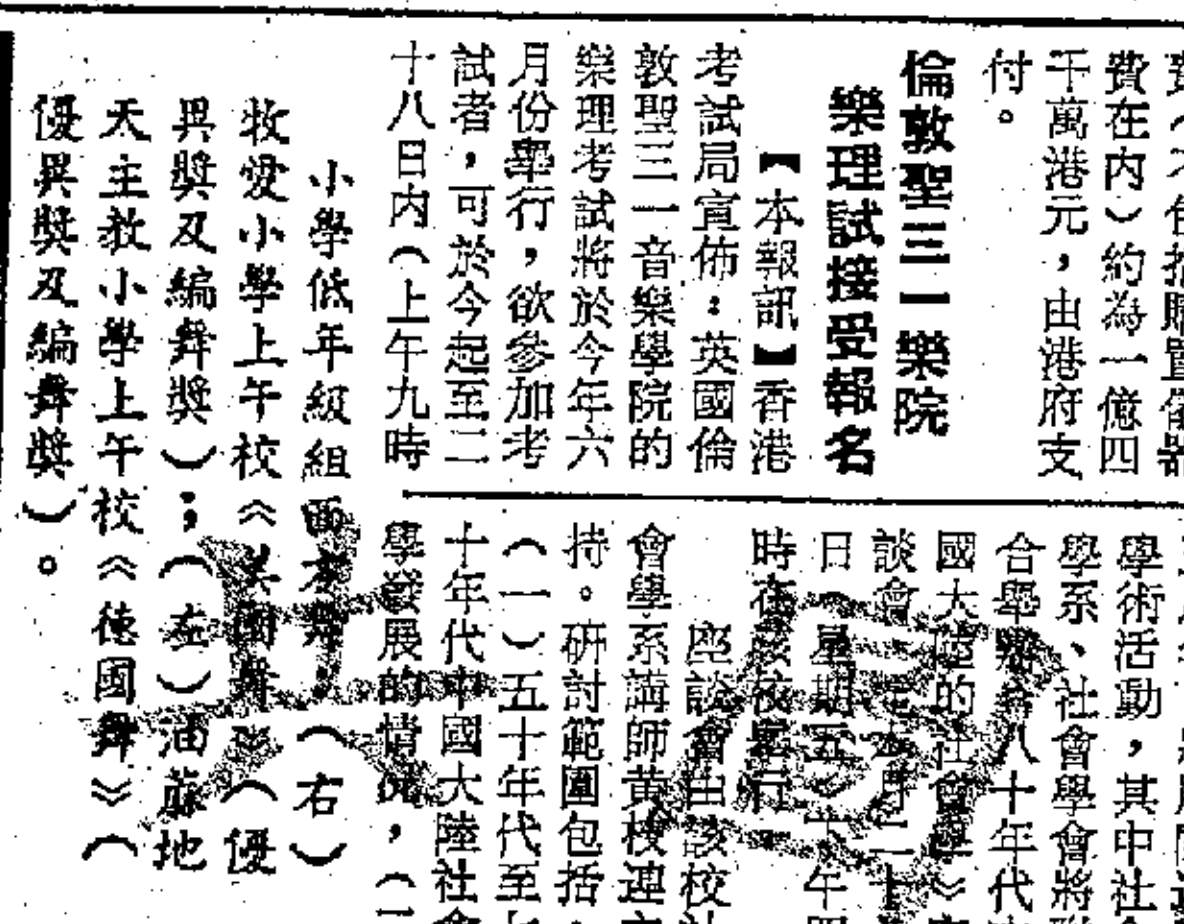 費在內）約為一億四
千萬港元，由港府支
付。
倫敦聖三一樂院
樂理試接受報名
【本報訊】香港
考試局宣佈：英國倫
敦聖三一音樂學院的
樂理考試將於今年六
月份舉行，欲參加考
試者，可於今起至二
十八日內（上午九時
學術活動，其中社
學系、社會學會將聯
合舉辦 八十年代
國大陸的社會學》
談會 定本月二十
日（星期五）下午四
時在該校舉行
座談會由該校社
會學系講師黃 連
持。研討範圍包括：
（一）五十年代至七
十年代中國大陸社會
學發展的情況，（二
小學低年級組西方舞：（右）
牧愛小學上午校《英國舞 》（優
異獎及編舞獎）；（左）油蔴地
天主教小學上午校《德國舞》（
優異獎及編舞獎）。